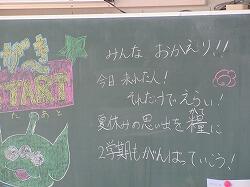 がっき
START
たあと
みんな おかえり!!
今日 来れた人!
それだけでえらい!
夏休みの思い出を糧に
かて
2学期もがんばっていこう!